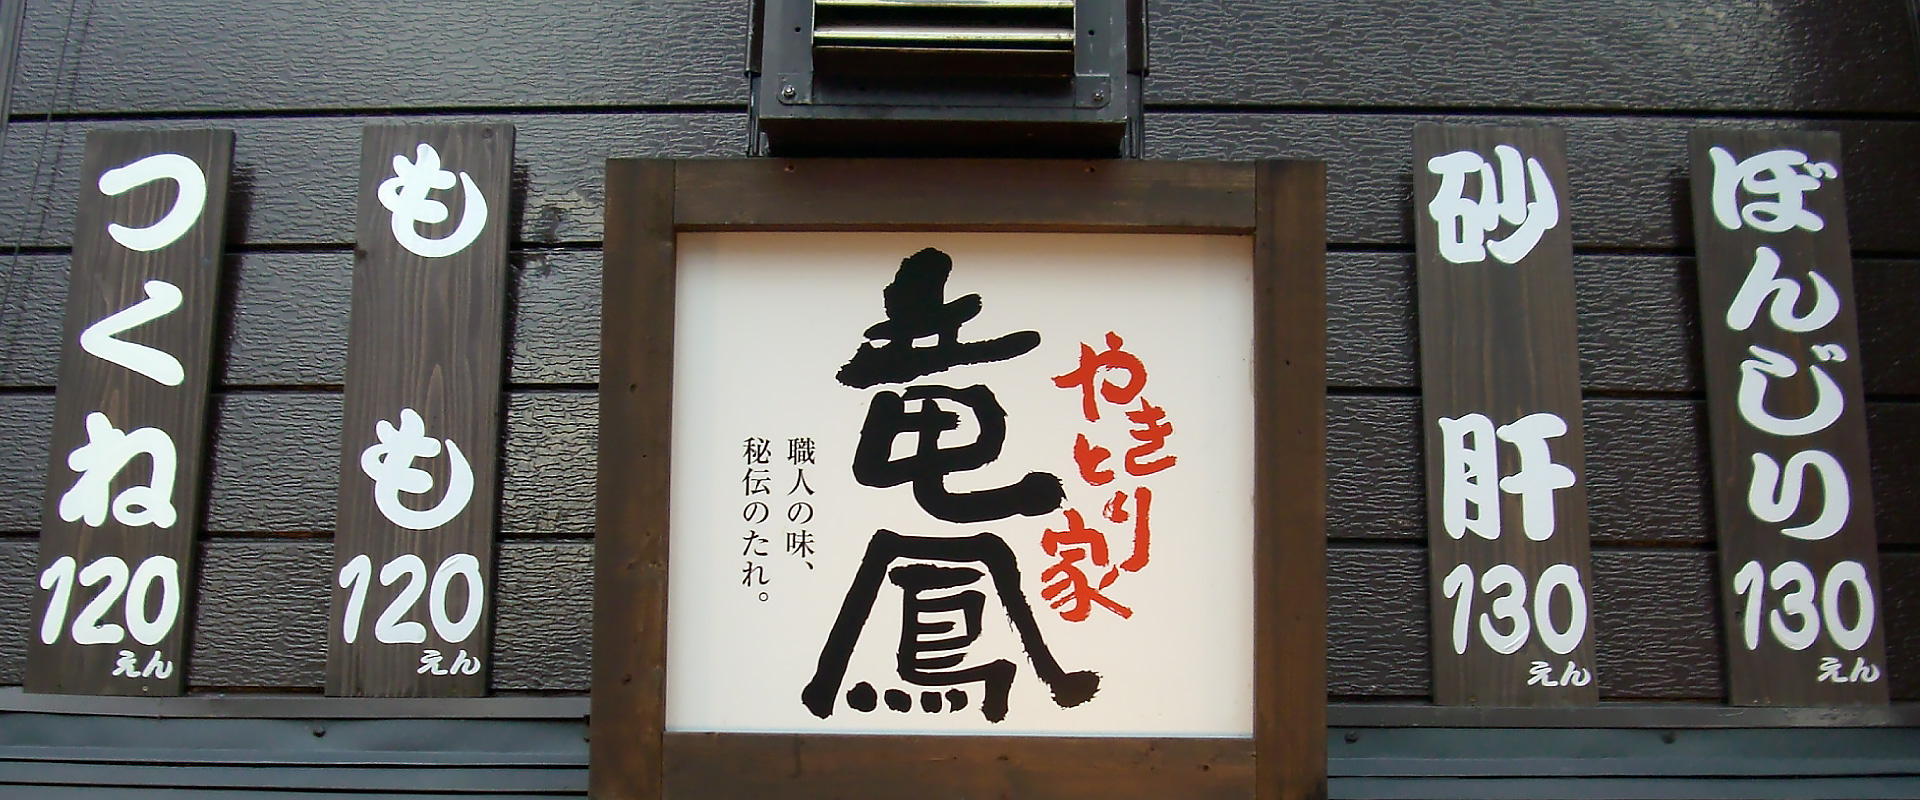 つくね
120
えん
もも
120
えん
やきとり家
竜鳳
職人の味、
秘伝のたれ。
砂肝
130
えん
ぼんじり
130
えん